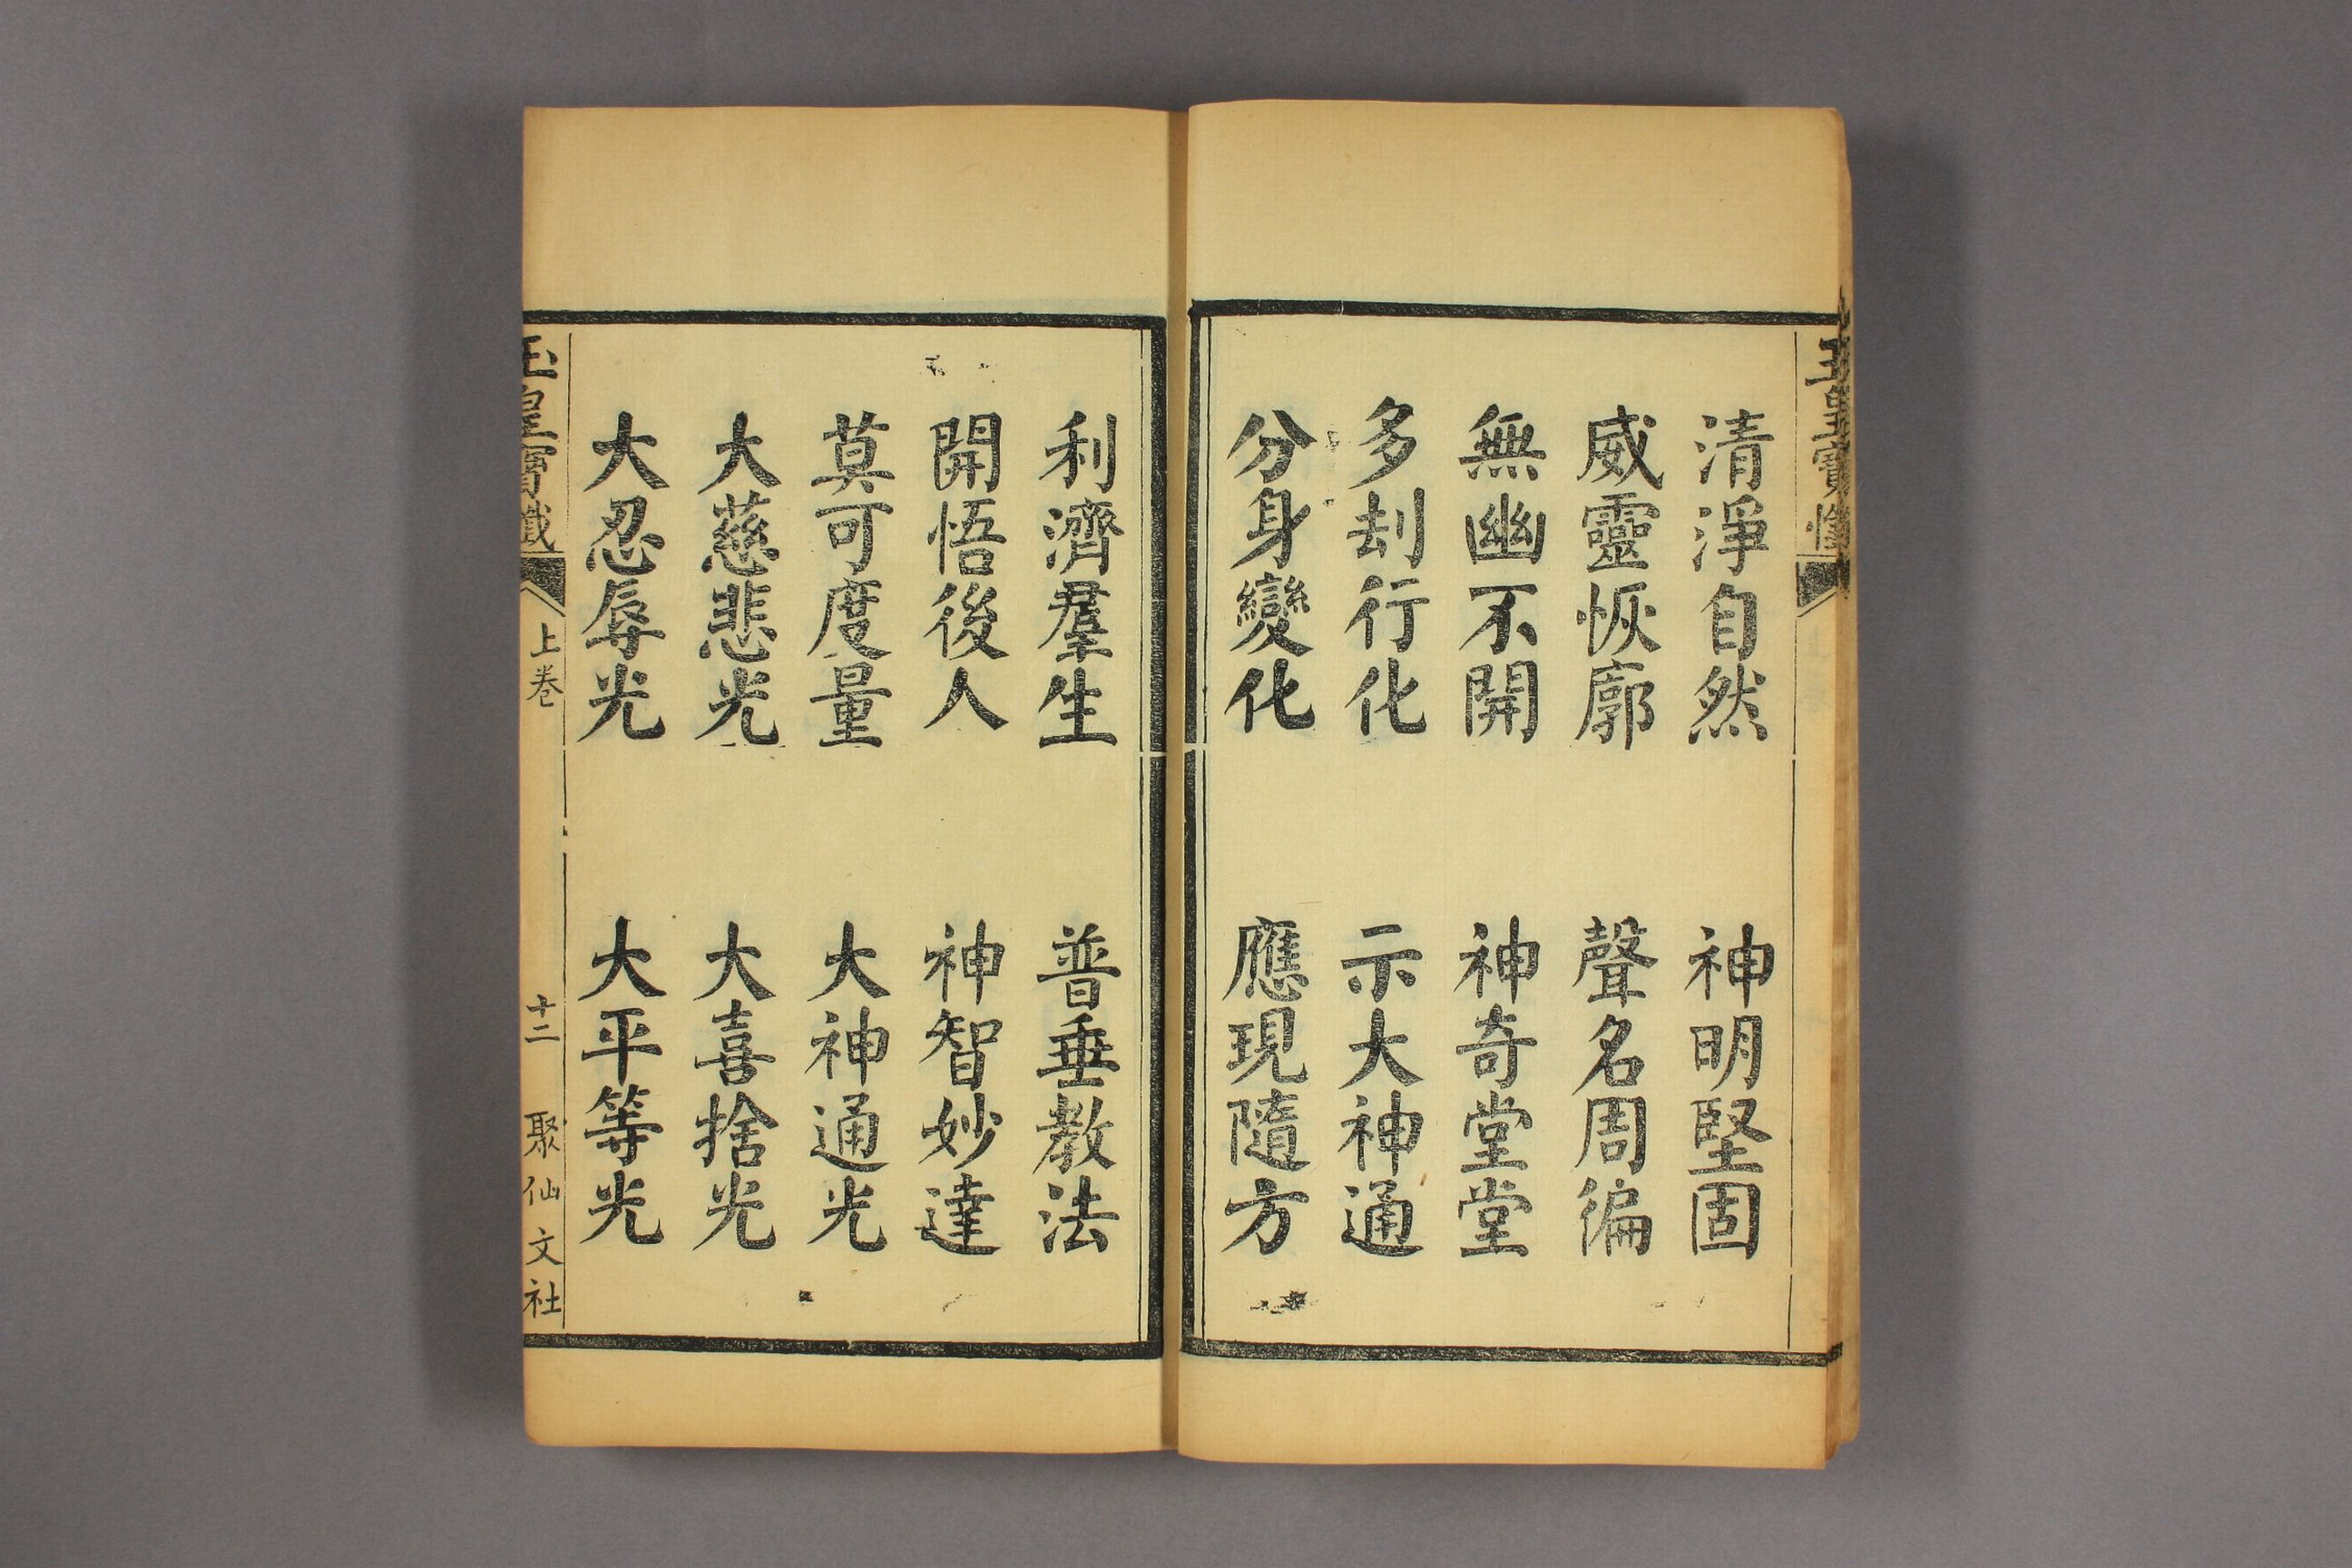 玉皇寶懺
清淨自然　神明堅固
威靈恢廓　聲名周徧
無幽不開　神奇堂堂
多刦行化　示大神通
分身變化　應現隨方
利濟羣生　普垂教法
開悟後人　神智妙達
莫可度量　大神通光
大慈悲光　大喜捨光
大忍辱光　大平等光
玉皇寶懺　上卷　十二　聚仙文社